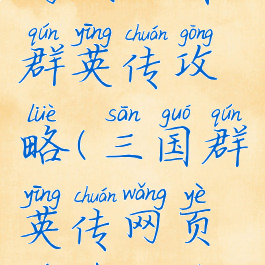 qún yīng chuán gōng
群英传攻
lüè sān guó qún
略(三国群
yīng chuán wǎng yè
英传网页